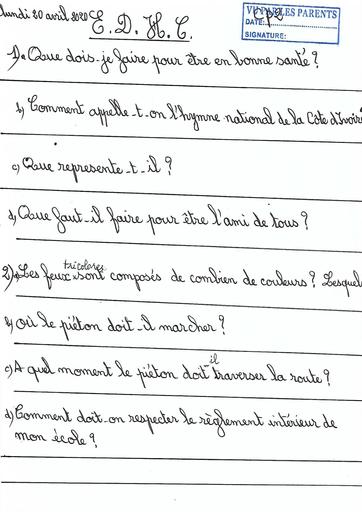 lundi 20 avril 2020 E. D. H. C.
VU PAR LES PARENTS
CP2
DATE:
SIGNATURE:
1)a Que dois-je faire pour être en bonne santé ?
b) Comment appelle-t-on l'hymne national de la Côte d'Ivoire
c) Que represente-t-il ?
d) Que faut-il faire pour être l'ami de tous ?
2)a) Les feux tricolores sont composés de combien de couleurs ? Lesquel
b) Où le piéton doit-il marcher ?
c) A quel moment le piéton doit il traverser la route ?
d) Comment doit-on respecter le règlement intérieur de
mon école ?